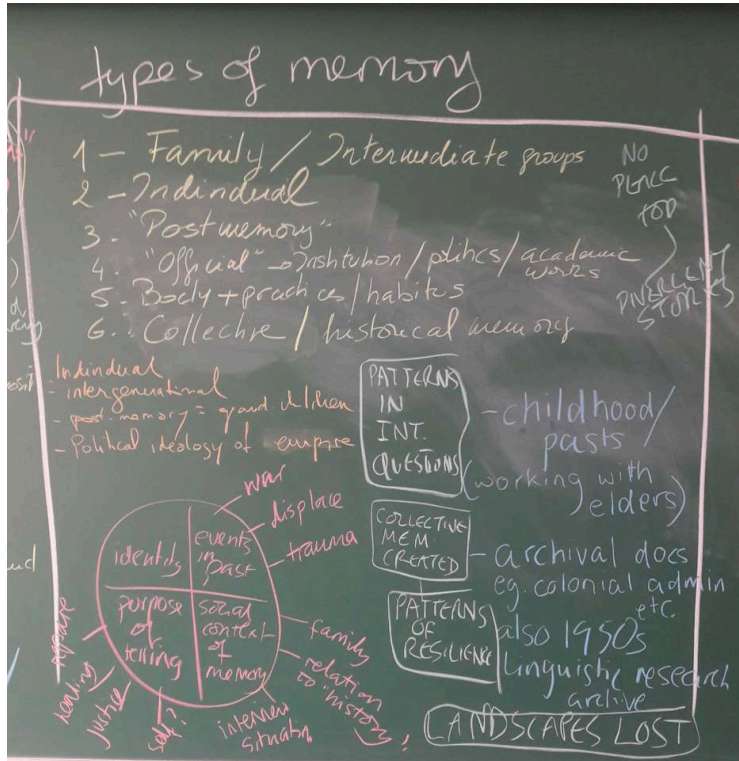 types of memory
1 - Family / Intermediate groups
2 - Individual
3. "Postmemory"
4. "Official" → Institution / politics / academic works
5. Body + practices / habitus
6. Collective / historical memory
NO
PEACE
TOD
DIVERGENT
STORIES
Individual
- intergenerational
- post-memory = grand children
- Political ideology of empire
PATTERNS
IN
INT.
QUESTIONS
- childhood/
pasts
(working with
elders)
COLLECTIVE
MEM.
CREATED
- archival docs
eg. colonial admin
etc.
PATTERNS
OF
RESILIENCE
also 1950s
linguistic research
archive
LANDSCAPES LOST
identity
events
in
past
purpose
of
telling
social
context
of
memory
war
displace
trauma
family
relation
to "history"
interview
situation
justice
healing